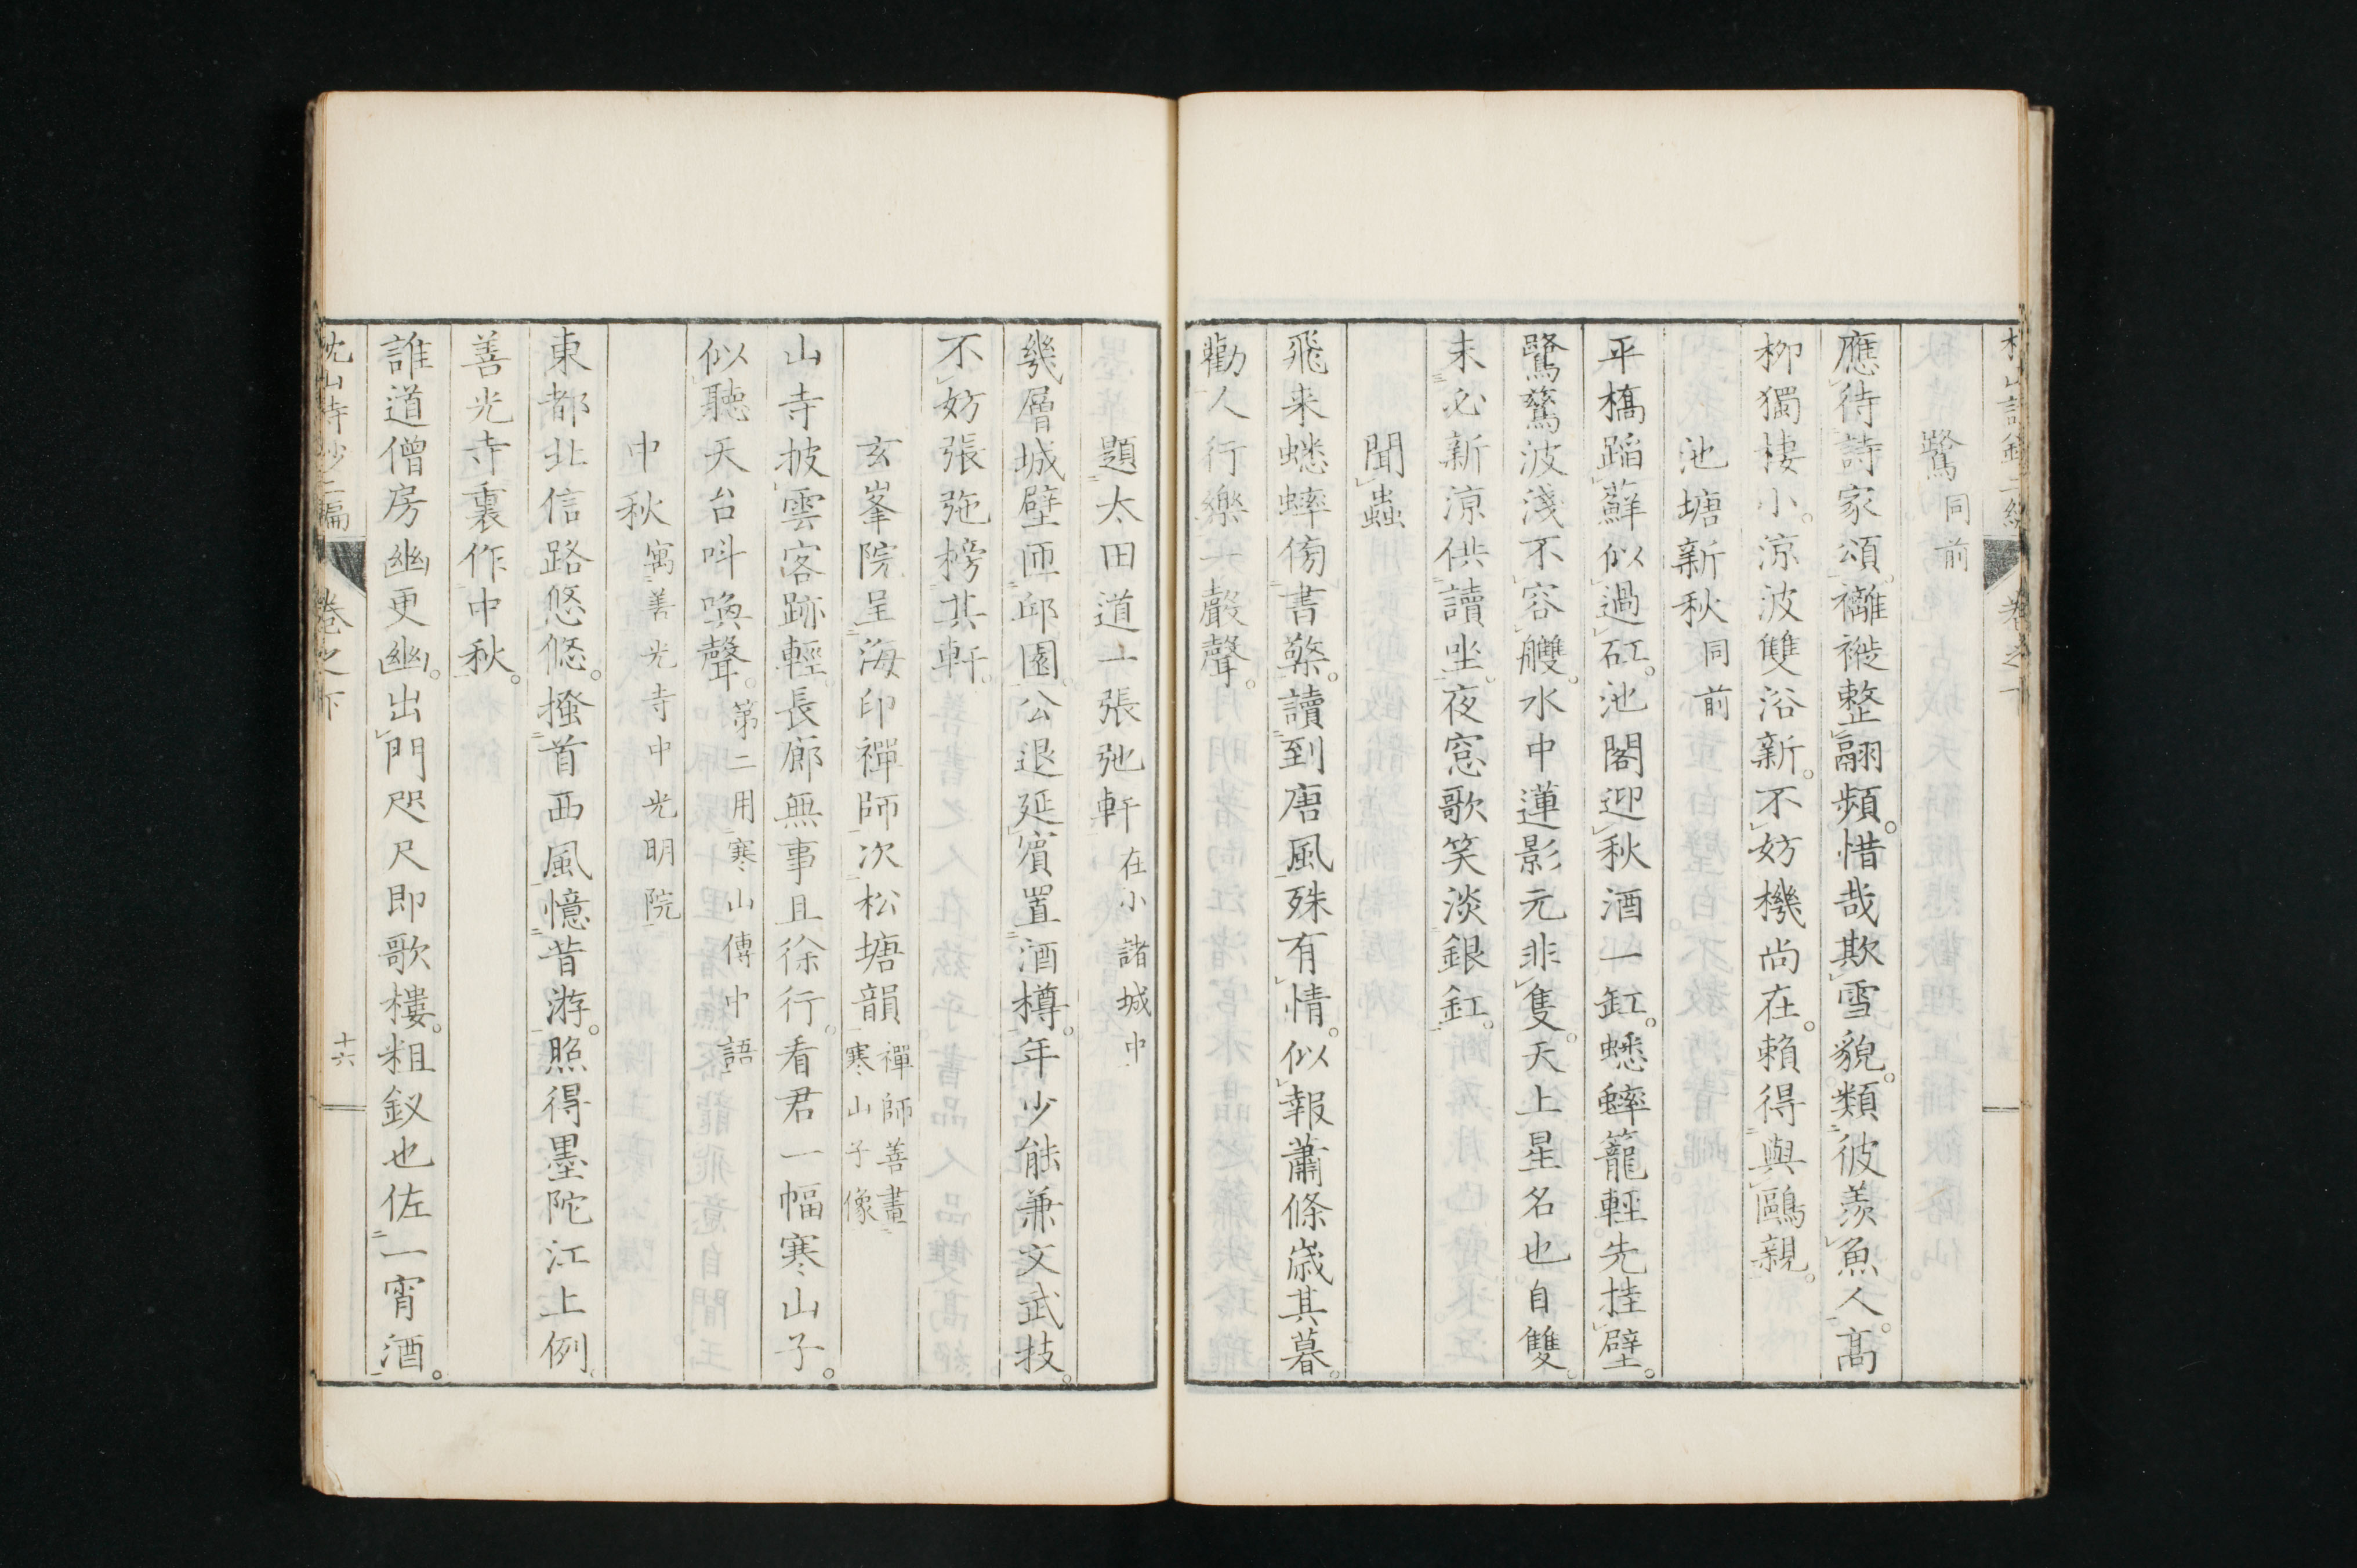 鷺同前
應待詩家頌襹褷整翮頻。惜哉欺雪貌。類彼羨魚人。高
柳獨棲小。涼波雙浴新。不妨機尚在。賴得與鷗親。
池塘新秋同前
平橋蹈蘚似過矼。池閣迎秋酒一缸。蟋蟀籠輕先挂壁。
鷺鶩波淺不容艭。水中蓮影元非隻。天上星名也自雙。
未必新涼供讀坐。夜窓歌笑淡銀釭。
聞蟲
飛来蟋蟀傍書檠。讀到唐風殊有情。似報蕭條歳其暮。
勸人行樂一聲聲。
題太田道一張弛軒在小諸城中
幾層城壁匝邱園。公退延賓置酒樽。年少能兼文武技。
不妨張弛榜其軒。
玄峯院呈海印禪師次松塘韻禪師善畫寒山子像
山寺披雲客跡輕。長廊無事且徐行。看君一幅寒山子。
似聽天台呌喚聲。第二用寒山傳中語
中秋寓善光寺中光明院
東都北信路悠悠。搔首西風憶昔游。照得墨陀江上例。
善光寺裏作中秋。
誰道僧房幽更幽。出門咫尺即歌樓。粗釵也佐一宵酒。
枕山詩鈔二編 卷之下 十六